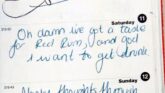 Saturday 11
Oh damn ive got a taste
for Red Rum, and god
I want to get drunk.
Sunday 12
thoughts through